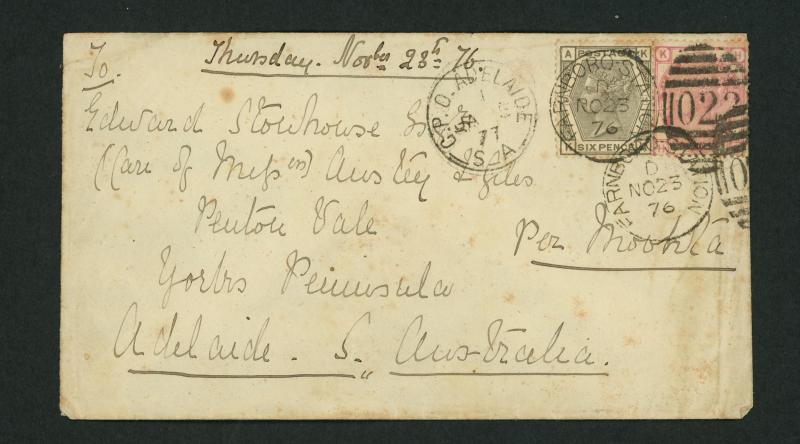 To
Thursday. Novber 23rd 76.
Edward Stonhouse Esq
(Care of Messrs Anstey Giles
Penton Vale
Yorks Peninsula
Adelaide. S. Australia.
Per Mooltan
G.P.O. ADELAIDE
S.A
77
A POSTAGE K
K SIX PENCE A
K H
FARNBORO STATION
NO23
76
022
FARNBORO STATION
D
NO23
76